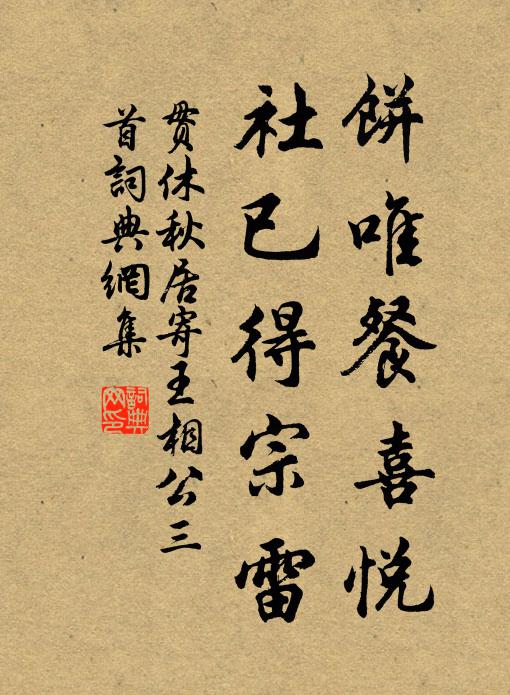 餅唯餐喜悅
社已得宗雷
貫休秋居寄王相公三
首詞典網集
詞典
网印